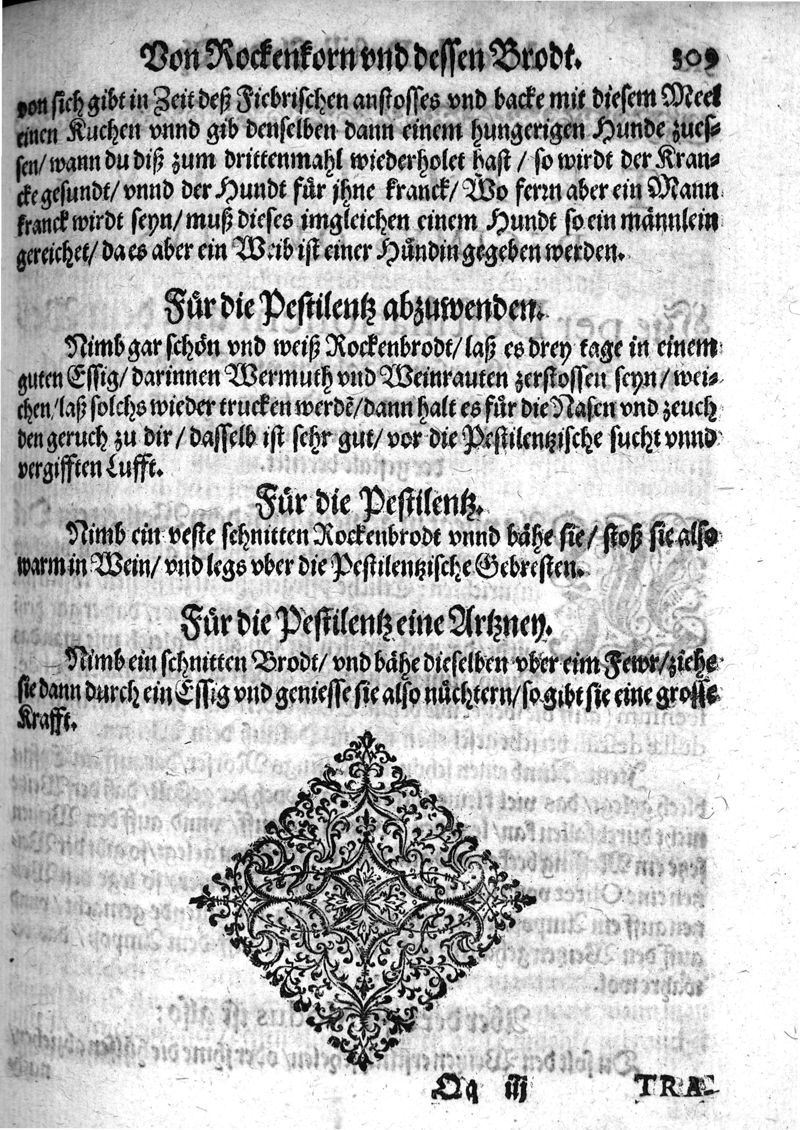 Von Rockenkorn vnd dessen Brodt. 309
von sich gibt in Zeit deß Fiebrischen anstosses vnd backe mit diesem Meel
einen Kuchen vnnd gib denselben dann einem hungerigen Hunde zues-
sen/ wann du diß zum drittenmahl wiederholet hast / so wirdt der Kran-
cke gesundt/ vnnd der Hundt für jhne kranck/ Wo ferrn aber ein Mann
kranck wirdt seyn/ muß dieses imgleichen einem Hundt so ein männlein
gereichet/ da es aber ein Weib ist einer Hündin gegeben werden.
Für die Pestilentz abzuwenden.
Nimb gar schön vnd weiß Rockenbrodt/ laß es drey tage in einem
guten Essig/ darinnen Wermuth vnd Weinrauten zerstossen seyn/ wei-
chen/ laß solchs wieder trucken werdẽ/ dann halt es für die Nasen vnd zeuch
den geruch zu dir / dasselb ist sehr gut/ vor die Pestilentzische sucht vnnd
vergifften Lufft.
Für die Pestilentz.
Nimb ein veste schnitten Rockenbrodt vnnd bähe sie/ stoß sie also
warm in Wein/ vnd legs vber die Pestilentzische Gebresten.
Für die Pestilentz eine Artzney.
Nimb ein schnitten Brodt/ vnd bähe dieselben vber eim Fewr/ ziehe
sie dann durch ein Essig vnd geniesse sie also nüchtern/ so gibt sie eine grosse
Krafft.
Qq iij TRA-